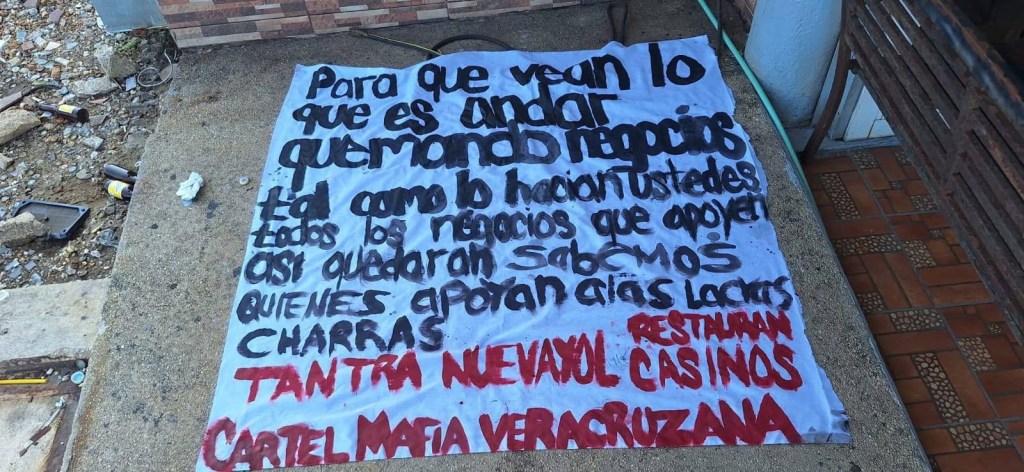 Para que vean lo
que es andar
quemando negocios
tal como lo hacian ustedes
todos los negocios que apoyen
asi quedaran sabemos
QUIENES apoyan a las Lacras
CHARRAS
RESTAURAN
TANTRA NUEVAYOL CASINOS
CARTEL MAFIA VERACRUZANA